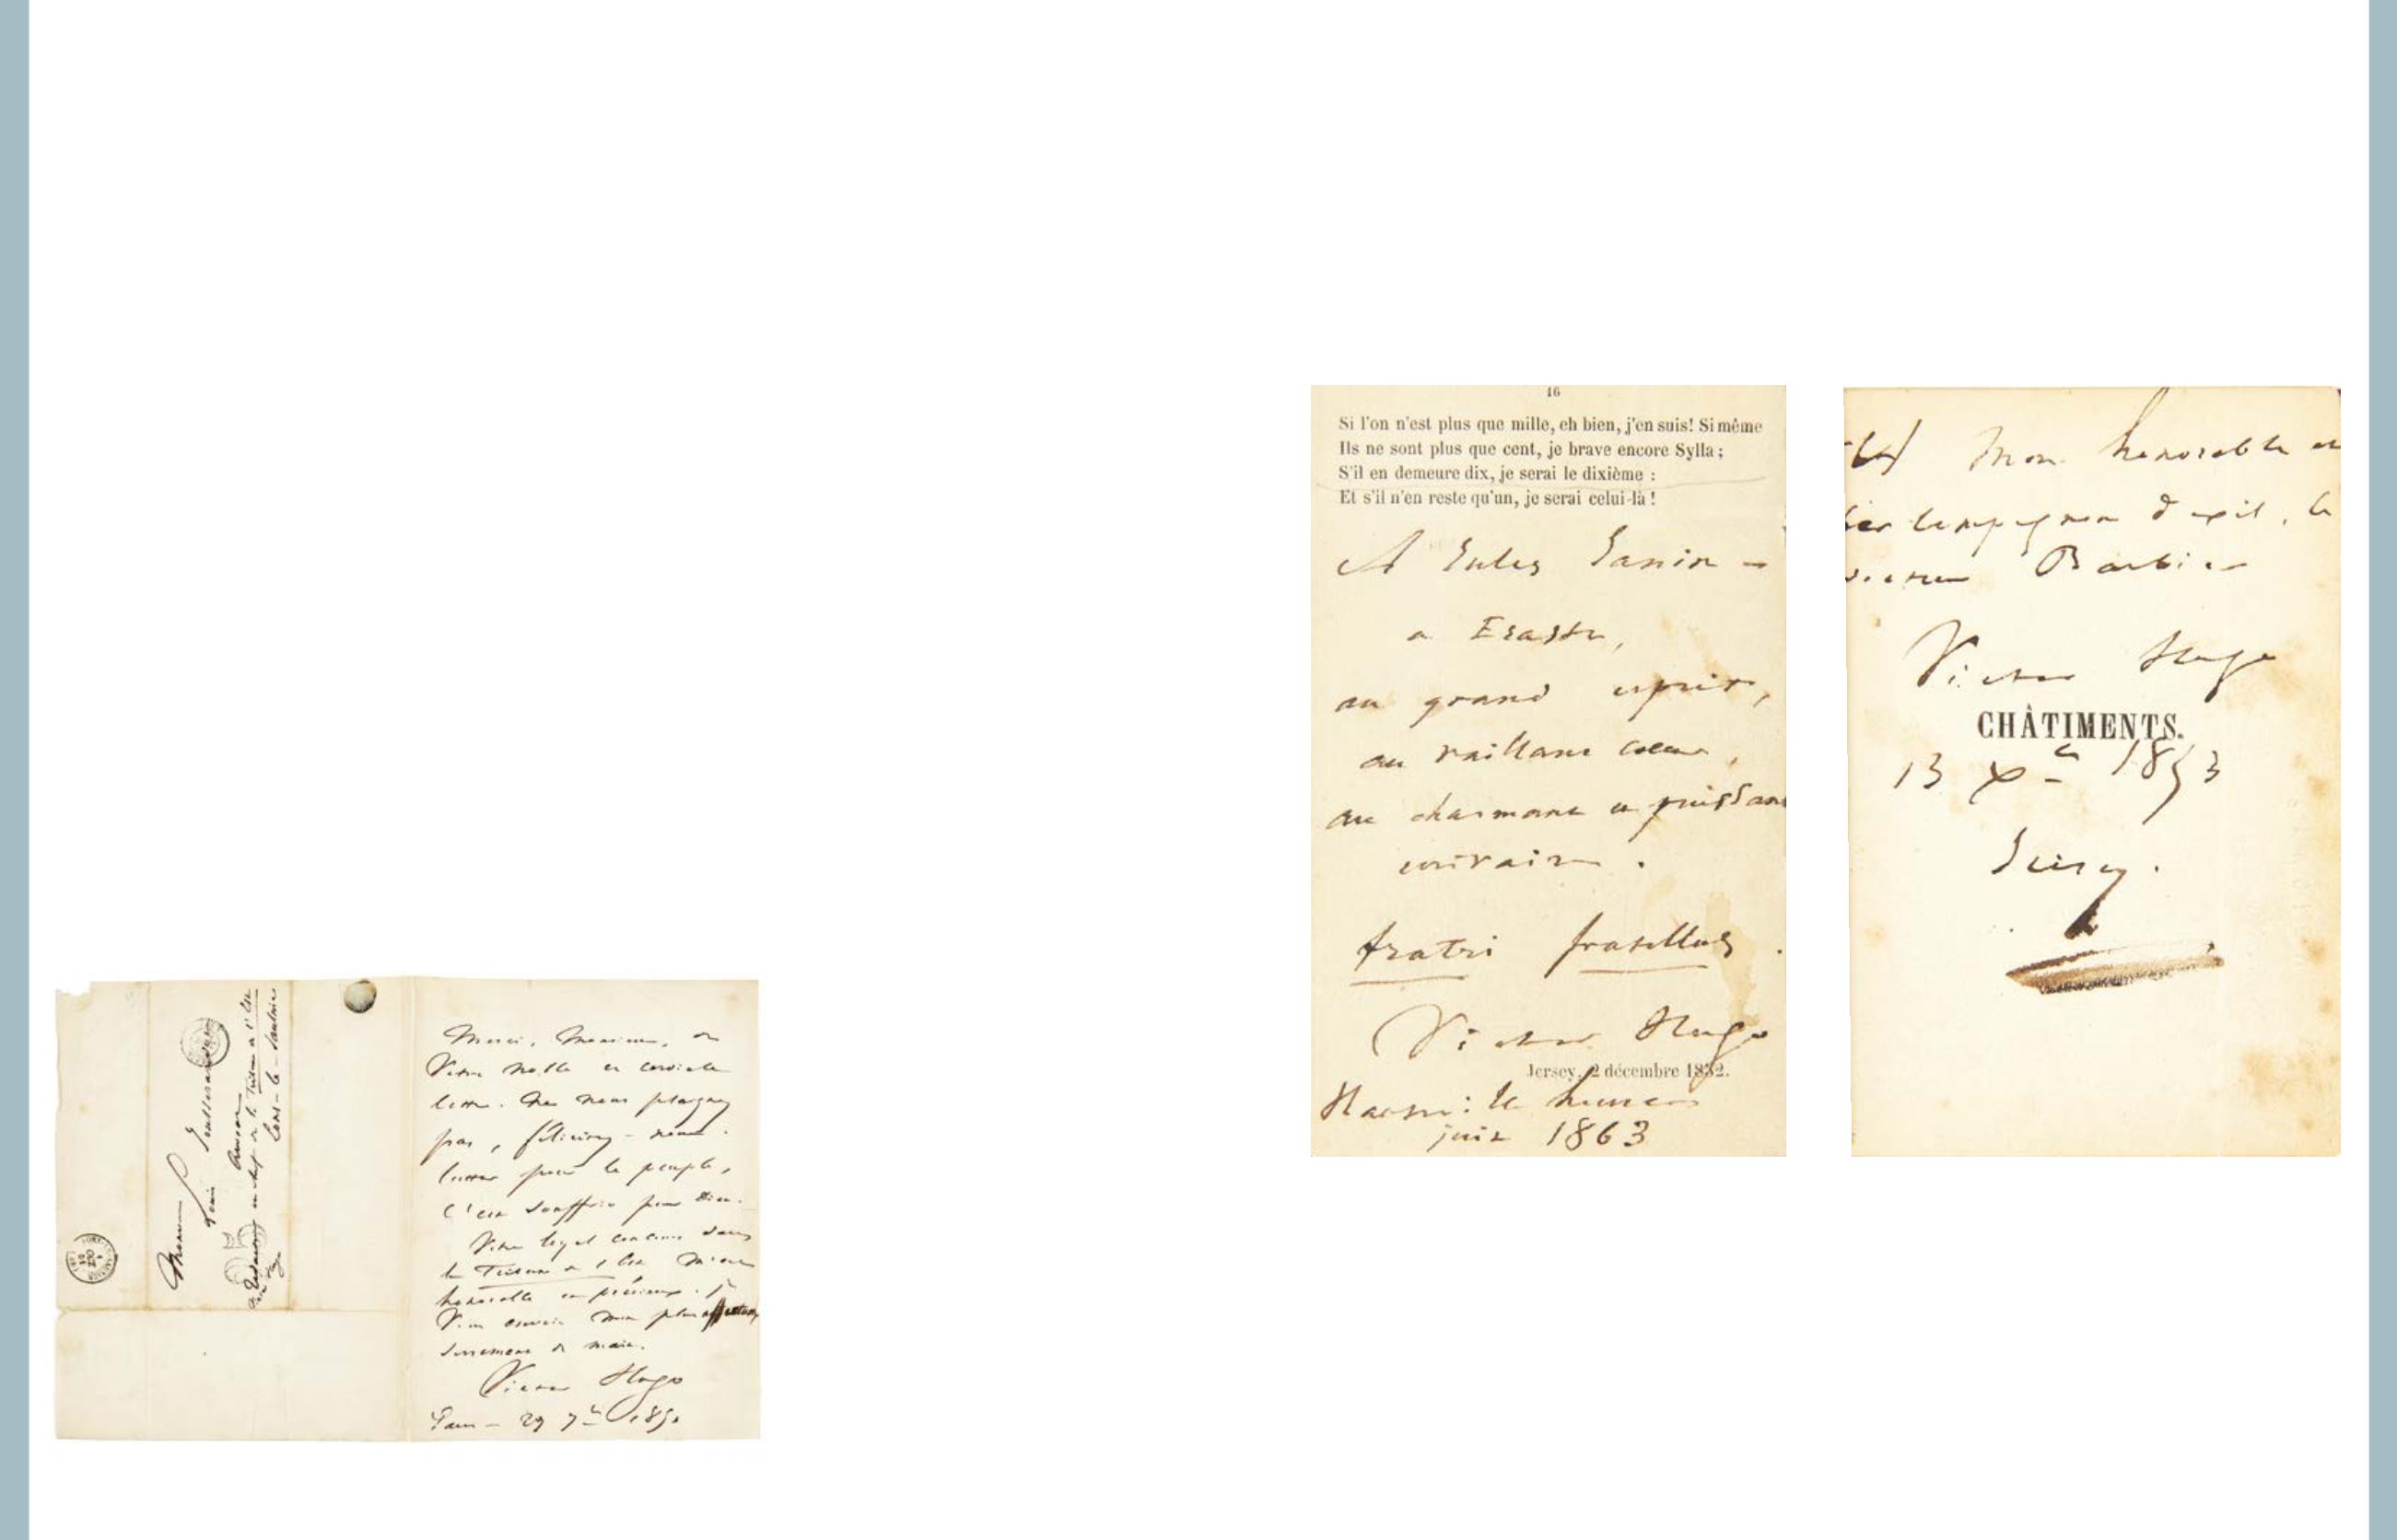 Monsieur
Louis Jousserandot
Avocat
Rédacteur en chef de la Tribune de l'Est
Lons-le-Saulnier
Merci, Monsieur, de
votre noble et cordiale
lettre. Ne nous plaignez
pas, félicitez-nous.
lutter pour le peuple,
c'est souffrir pour Dieu.
Votre loyal concours dans
la Tribune de l'Est m'est
honorable et précieux. Je
vous envoie mon plus affectueux
serrement de main.
Victor Hugo
Paris - 29 7bre 1850
16
Si l'on n'est plus que mille, eh bien, j'en suis! Si même
Ils ne sont plus que cent, je brave encore Sylla ;
S'il en demeure dix, je serai le dixième :
Et s'il n'en reste qu'un, je serai celui-là !
A Jules Janin -
a Eraste,
au grand esprit,
au vaillant cœur,
au charmant et puissant
écrivain.
fratri fratellus.
Victor Hugo
Jersey, 2 décembre 1852.
Hauteville house
juin 1863
Mon honorable et
cher compagnon d'exil, le
docteur Barbier
Victor Hugo
CHÂTIMENTS.
13 Xbre 1853
Jersey.